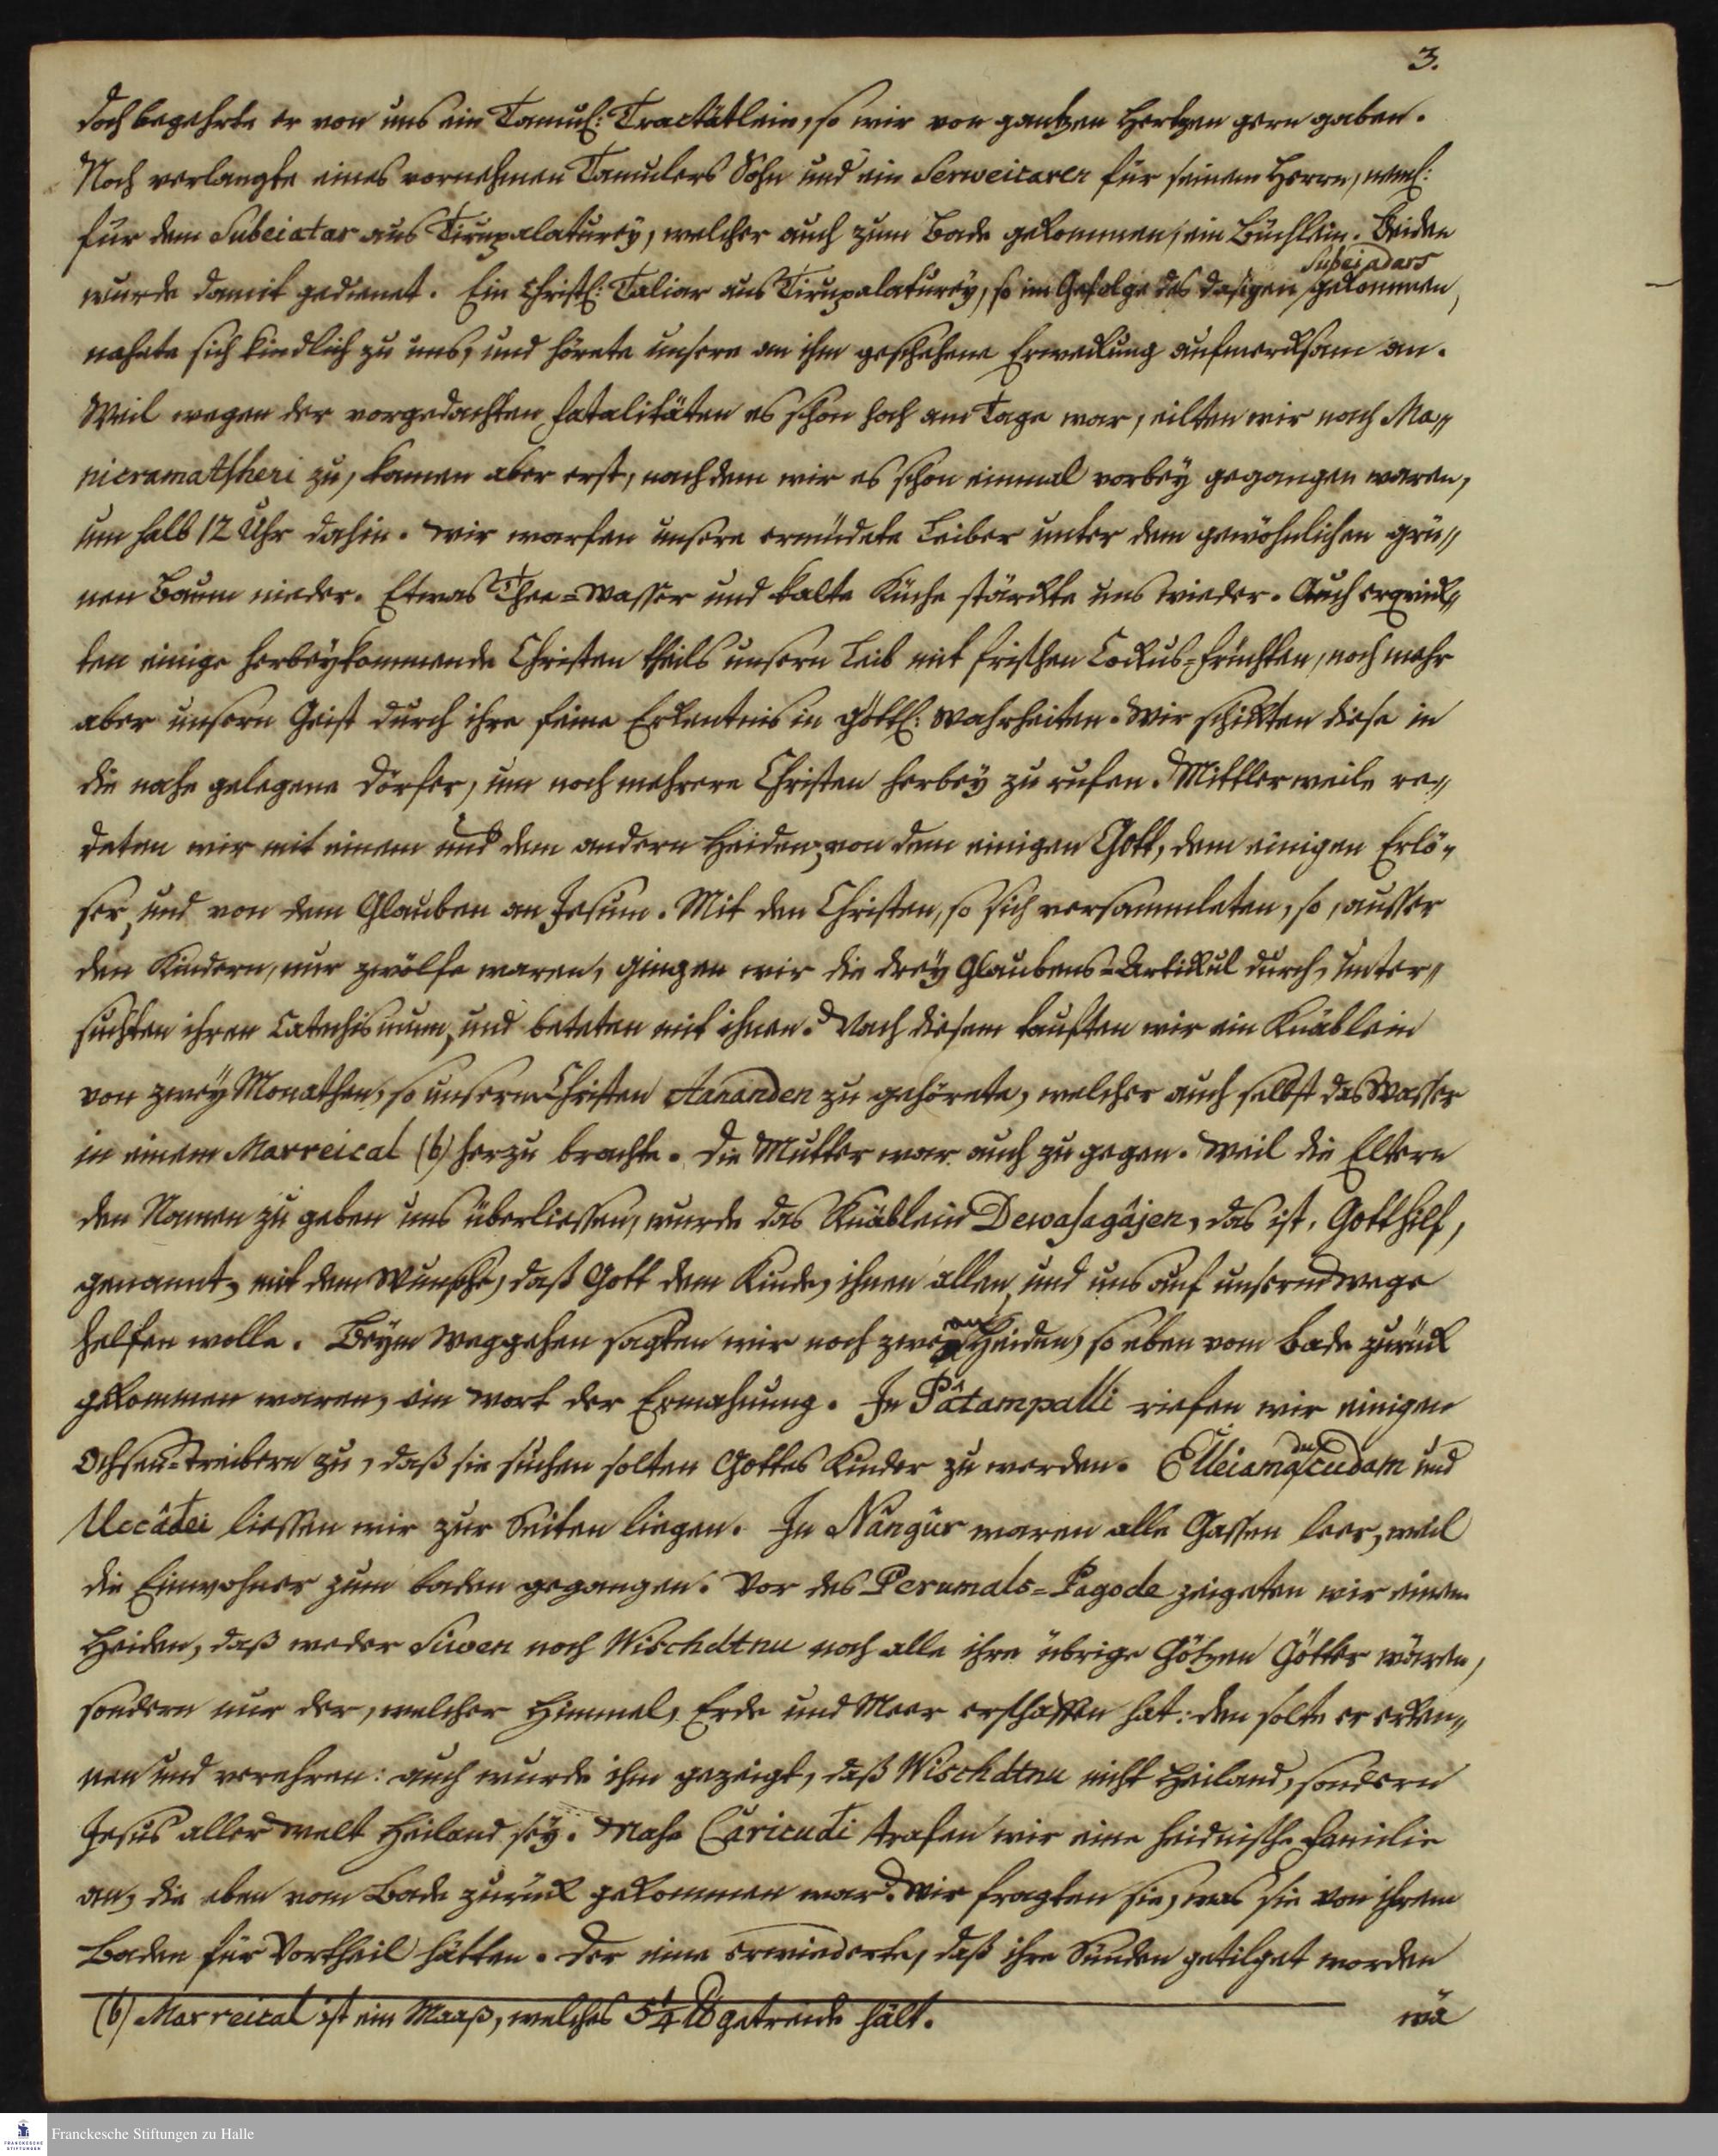 3.
doch begehrte er von uns ein Tamul: Tractätlein, so wir von gantzen Hertzen gern gaben.
Noch verlangte eines vornehmen Tamulers Sohn und ein Serweicaren für seinem Herrn, neml:
für dem Subeiatar aus Tirupalaturey, welcher auch zum Bade gekommen, ein Büchlein. Beiden
Subeiadars
wurde damit gedienet. Ein Christl: Taliar aus Tirupalaturey, so im Gefolge des dasigen gekommen,
nahete sich kindlich zu uns, und hörete unsere an ihm geschehene Erweckung aufmercksam an.
Weil wegen der vorgedachten fatalitäten es schon hoch am Tage war, eilten wir nach Ma„
nicramatsheri zu, kamen aber erst, nachdem wir es schon einmal vorbey gegangen waren,
um halb 12 Uhr dahin. Wir warfen unsere ermüdete Leiber unter dem gewöhnlichen grü„
nen Baum nieder. Etwas Thee-Wasser und kalte Küche stärckte uns wieder. Auch erquick„
ten einige herbeykommende Christen theils unsern Leib mit frischen Cockus-früchten, noch mehr
aber unsern Geist durch ihre feine Erkentnis in göttl: Wahrheiten. Wir schickten diese in
die nahe gelegene Dörfer, um noch mehrere Christen herbey zu rufen. Mittlerweile re„
deten wir mit einem und dem andern Heiden, von dem einigen Gott, dem einigen Erlö„
ser, und von dem Glauben an Jesum. Mit den Christen, so sich versammleten, so, ausser
den Kindern, nur zwölfe waren, gingen wir die drey Glaubens-Artickul durch, unter„
suchten ihren Catechismum, und beteten mit ihnen. Nach diesem tauften wir ein Knäblein
von zwey Monathen, so unserm Christen Aananden zu gehörete, welcher auch selbst das Wasser
in einem Marreical (b) herzu brachte. Die Mutter war auch zu gegen. Weil die Eltern
den Namen zu geben uns überliessen, wurde das Knäblein Dewasagâjen, das ist, Gotthilf,
genannt, mit dem Wunsche, daß Gott dem Kinde, ihnen allen, und uns auf unserm Wege
helfen wolle. Beym Weggehen sagten wir noch zween Heiden, so eben vom Bade zurück
gekommen waren, ein Wort der Ermahnung. In Pâtampalli riefen wir einigen
Ochsen-Treibern zu, daß sie suchen solten Gottes Kinder zu werden. Elleiamaducudam und
Uccâdei liessen wir zur Seiten liegen. In Nângûr waren alle Gassen leer, weil
die Einwohner zum baden gegangen. Vor des Perumals-Pagode zeigeten wir einem
Heiden, daß weder Siwen noch Wischdtnu noch alle ihre übrige Götzen Götter wären,
sondern nur der, welcher Himmel, Erde und Meer erschaffen hat: den solte er erken„
nen und verehren: auch wurde ihm gezeigt, daß Wischdtnu nicht Heiland, sondern
Jesus aller Welt Heiland sey. Nahe Caricudi trafen wir eine heidnische Familie
an, die eben vom Bade zurück gekommen war. Wir fragten sie, was sie von ihrem
Baden für Vortheil hätten. Der eine erwiederte, daß ihre Sünden getilget worden
(b) Marreical ist ein Maaß, welches 5¼ ℔ getreide hält.
wä
Franckesche Stiftungen zu Halle